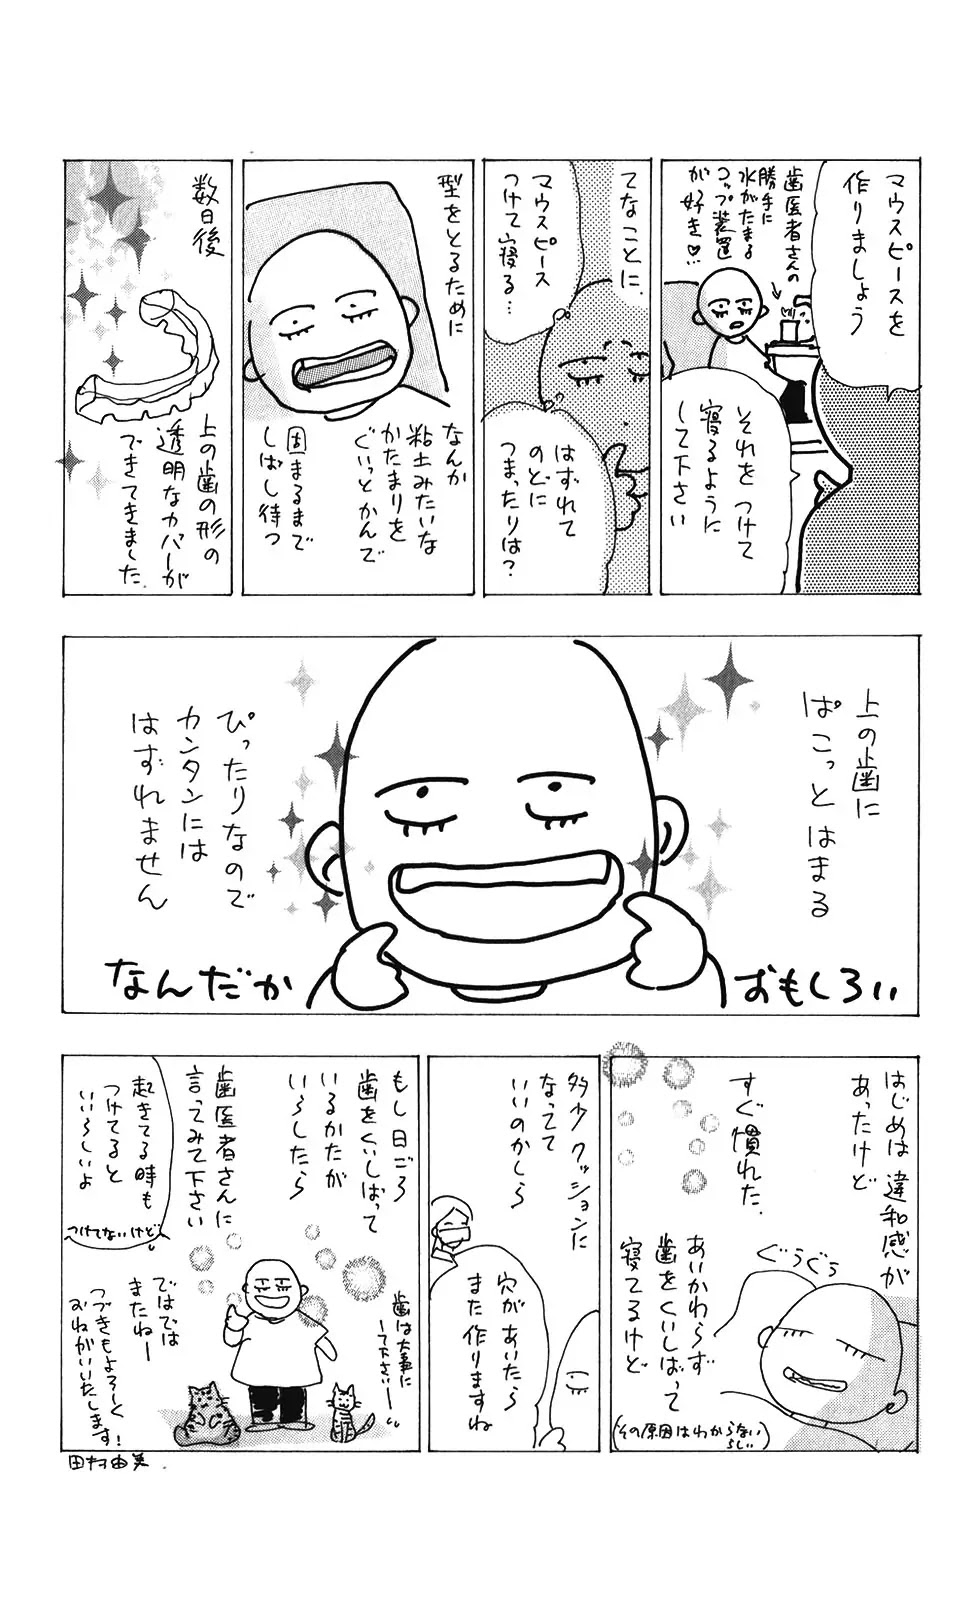 マウスピースを
作りましょう
歯医者さんの
勝手に
水がたまる
コップ装置
が好き♡…
それをつけて
寝るように
して下さい
てなことに、
マウスピース
つけて寝る…
はずれて
のどに
つまったりは?
型をとるために
なんか
粘土みたいな
かたまりを
ぐいっとかんで
固まるまで
しばし待つ
数日後
上の歯の形の
透明なカバーが
できてきました.
上の歯に
ぱこっとはまる
ぴったりなので
カンタンには
はずれません
なんだか
おもしろい
はじめは違和感が
あったけど
すぐ慣れた.
ぐうぐう
あいかわらず
歯をくいしばって
寝てるけど
(その原因はわからない
らしい)
多少クッションに
なってて
いいのかしら
穴があいたら
また作りますね
もし日ごろ
歯をくいしばって
いるかたが
いらしたら
歯医者さんに
言ってみて下さい
起きてる時も
つけてると
いいらしいよ
つけてないけど
歯は大事に
して下さいー
ではでは
またねー
つづきもよろーく
おねがいいたします!
田村由美.